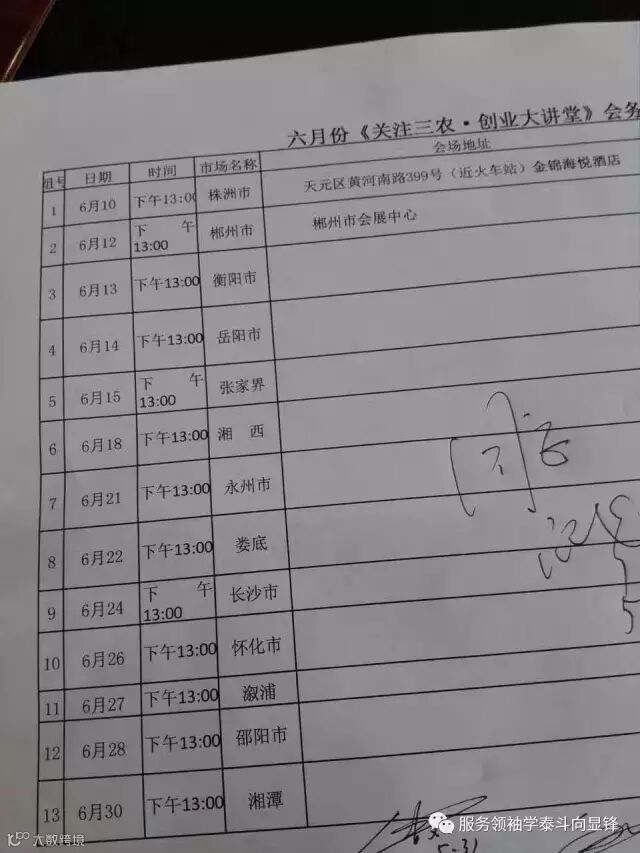 六月份《关注三农·创业大讲堂》会务
组号 日期 时间 市场名称 会场地址
1 6月10 下午13:00 株洲市 天元区黄河南路399号（近火车站）金锦海悦酒店
2 6月12 下午13:00 郴州市 郴州市会展中心
3 6月13 下午13:00 衡阳市
4 6月14 下午13:00 岳阳市
5 6月15 下午13:00 张家界
6 6月18 下午13:00 湘 西
7 6月21 下午13:00 永州市
8 6月22 下午13:00 娄底
9 6月24 下午13:00 长沙市
10 6月26 下午13:00 怀化市
11 6月27 下午13:00 溆浦
12 6月28 下午13:00 邵阳市
13 6月30 下午13:00 湘潭
5-31
大数跨境
服务领袖学泰斗向显锋